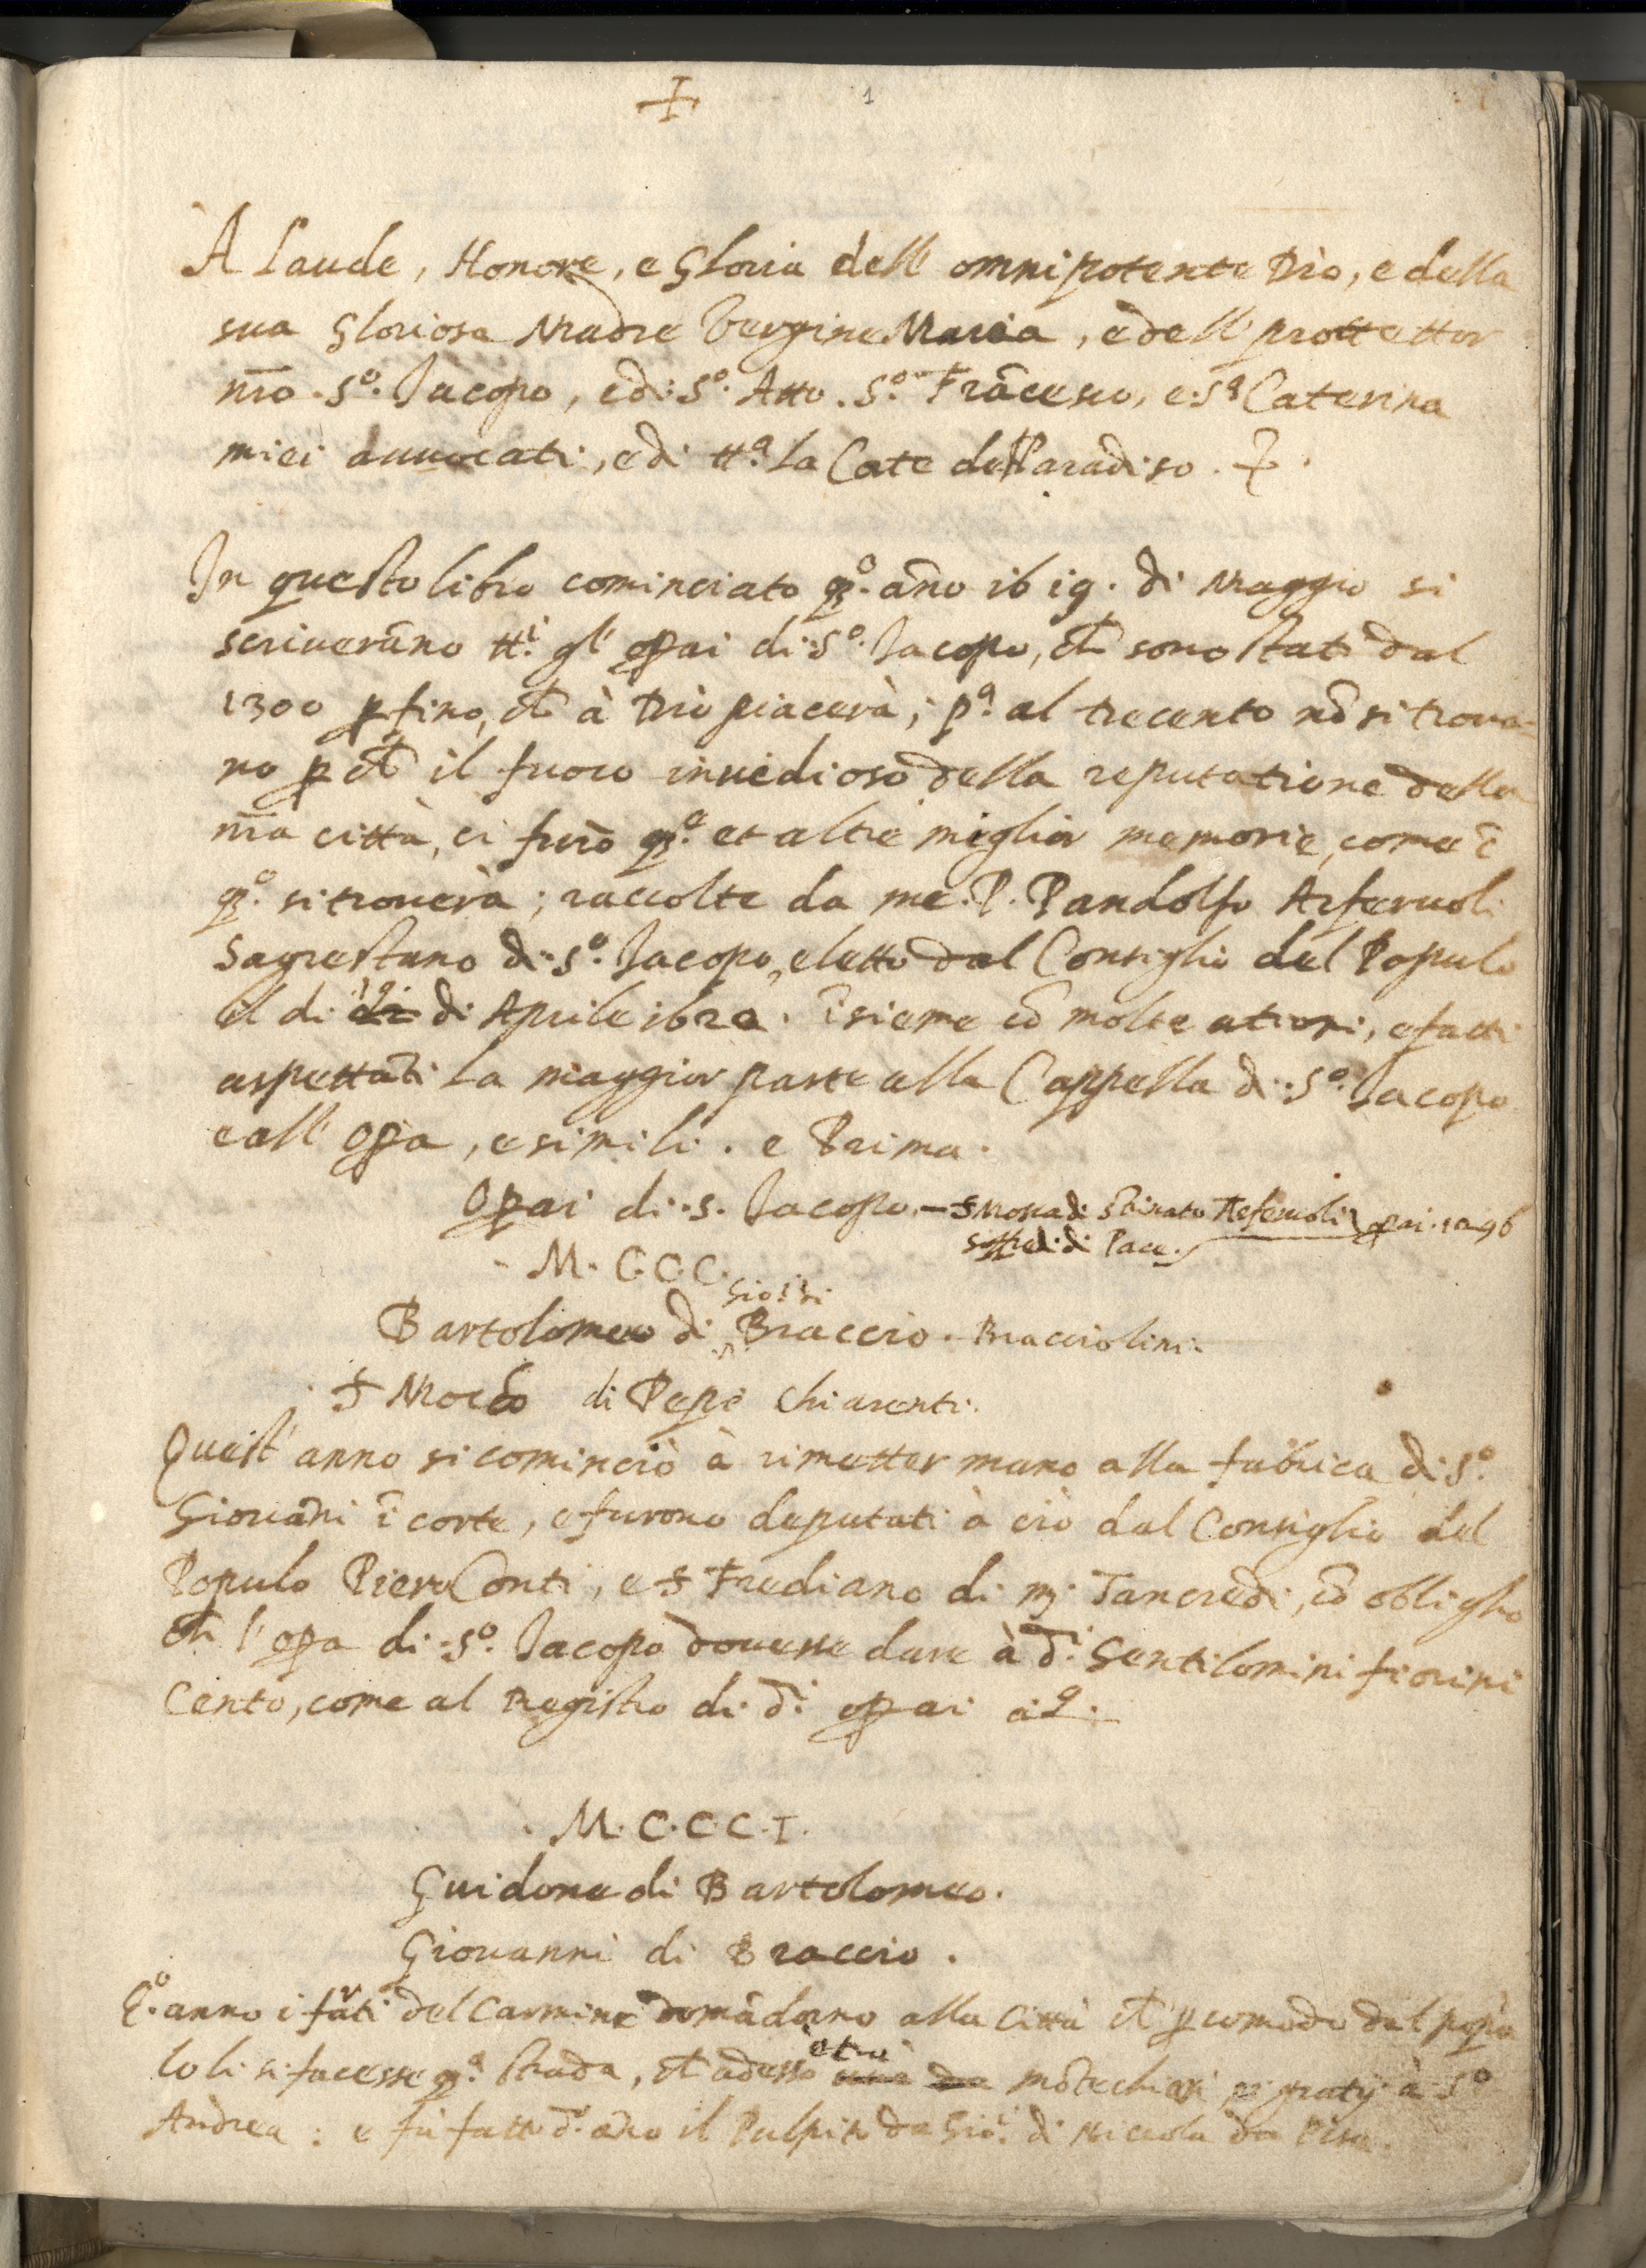 + 1
A Laude, Honore, e Gloria dell' omnipotente Dio, e della
sua Gloriosa Madre Vergine Maria, e dell' prottettor
nr̄o. Sº. Jacopo, e di Sº. Atto. Sº. Frācesco, e Sª Caterina
miei auuocati, e di ttª. la Corte del Paradiso.
In questo libro cominciato qº. año 1619. di Maggio si
scriuerāno ttⁱ. gl' opai di Sº. Jacopo, ch̄ sono stati dal
1300 p fino, ch̄ à Dio piacerà; pª. al trecento nō si troua-
no p ch̄ il fuoco inuedioso della reputatione della
nr̄a città, ci furò qᵉ. et altre miglior memorie, come ī
qº. si trouerà; raccolte da me. P. Pandolfo Arferuoli
Sagrestano di Sº. Jacopo, eletto dal Consiglio del Populo
il di di Aprile īsieme cō molte , e fatti
aspettāti la maggior parte alla Cappella di Sº. Jacopo
e all' opa, e simili. e Prima.
Opai di S. Jacopo. – di Arferuoli opai. 1296
di Pace.
M. C.C.C.
Bartolomeo di Braccio. Bracciolini.
di Pepi Chiarenti.
Quest' anno si cominciò à rimetter mano alla fabrica di Sº.
Giouāni ī corte, e furono deputati à ciò dal Consiglio del
Populo Piero Conti, e S Frediano di mʳ. Tancredi, cō obligho
ch̄ l' opa di Sº. Jacopo douesse dare à dⁱ. Gentilomini fiorini
Cento, come al Registro di dⁱ opai
M. C. C. C. I.
Guidone di Bartolomeo.
Giouanni di Braccio.
Qº. anno i frati del Carmine domādorno alla Città ch̄ p comodo del popu
lo li si facesse qª. strada, ch̄ adesso à Sº
Andrea: e fù fatto dº. año il Pulpito da Gioⁱ. di Niccola da Pisa.